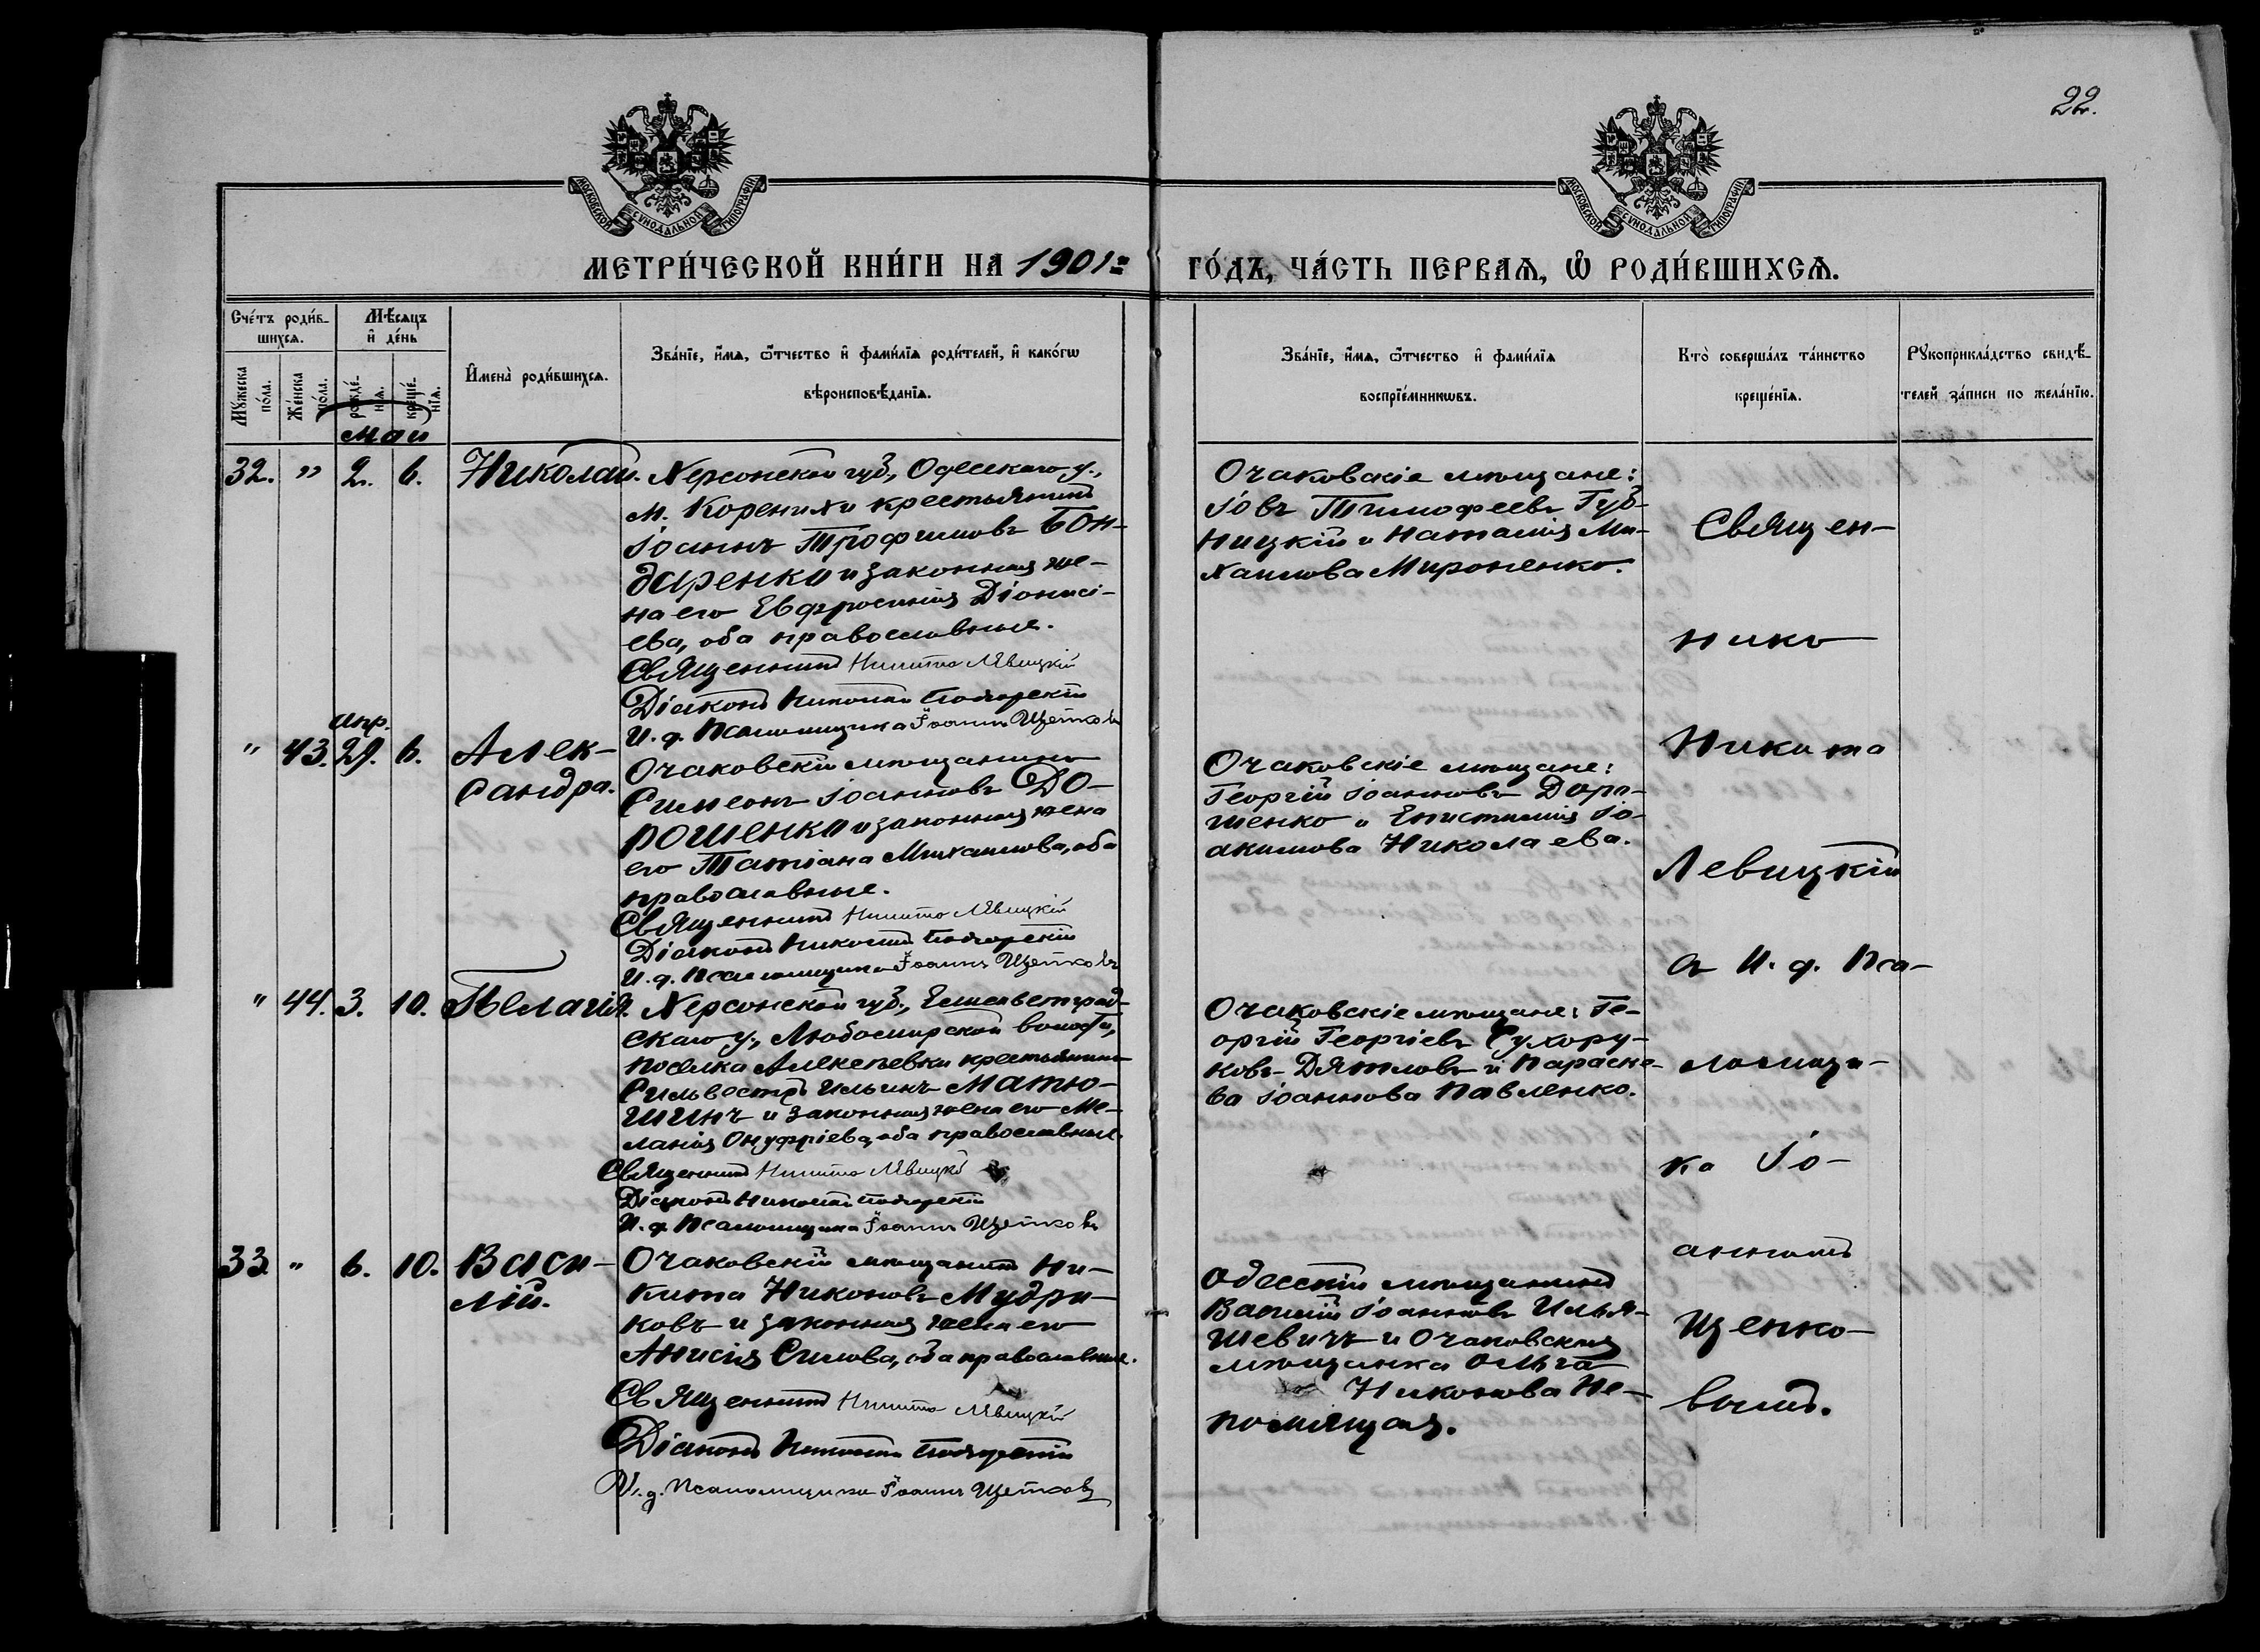 22.
МОСКОВСКОЙ СѴНОДАЛЬНОЙ ТИПОГРАФІИ
МОСКОВСКОЙ СѴНОДАЛЬНОЙ ТИПОГРАФІИ
МЕТРИ́ЧЕСКОЙ КНИ́ГИ НА 1901й
ГО́ДЪ, ЧА́СТЬ ПЕРВАѦ, Ѽ РОДИ́ВШИХСѦ.
Сче́тъ роди́в-
шихсѧ.
Мꙋ́жеска по́ла.
Же́нска по́ла.
Мѣ́сѧцъ
и҆ де́нь
рожде́-
нїѧ.
креще́-
нїѧ.
И҆мена̀ роди́вшихсѧ.
Зва́нїе, и҆́мѧ, ѻ҆́тчество и҆ фами́лїѧ роди́телей, и҆ како́гѡ
вѣроисповѣ́данїѧ.
Зва́нїе, и҆́мѧ, ѻ҆́тчество и҆ фами́лїѧ
воспрїе́мникѡвъ.
Кто̀ соверша́лъ та́инство
креще́нїѧ.
Рꙋкоприкла́дство свидѣ́-
телей за́писи по жела́нїю.
май
32. " 2. 6. Николай.
Херсонской губ., Одесскаго у.,
м. Коренихи крестьянинъ
Іоаннъ Трофимовъ Бон-
даренко и законная же-
на его Евфросинія Діонисі-
ева, оба православные.
Священникъ Никита Левицкій
Діаконъ Николай
И. д. Псаломщика Іоаннъ
Очаковскіе мѣщане:
Іовъ Тимофеевъ Губ-
ницкій и Наталія Ми-
хаилова Мироненко.
Апр.
" 43. 29. 6. Алек-
сандра.
Очаковскій мѣщанинъ
Симеонъ Іоанновъ До-
рошенко и законная жена
его Татіана Михаилова, оба
православные.
Священникъ Никита Левицкій
Діаконъ Николай
И. д. Псаломщика Іоаннъ
Очаковскіе мѣщане:
Георгій Іоанновъ Доро-
шенко и Епистимія Іо-
акимова Николаева.
" 44. 3. 10. Пелагія.
Херсонской губ., Елисаветград-
скаго у., Любомирской волости,
поселка Алексѣевки крестьянинъ
Сильвестръ Ильинъ Матю-
шинъ и законная жена его Ме-
ланія Онуфріева, оба православные.
Священникъ Никита Левицкій
Діаконъ Николай
И. д. Псаломщика Іоаннъ
Очаковскіе мѣщане: Ге-
оргій Георгіевъ Сухору-
ковъ-Дятловъ и Параске-
ва Іоаннова Павленко.
33. " 6. 10. Васи-
лій.
Очаковскій мѣщанинъ Ни-
кита Никоновъ Мудри-
ковъ и законная жена его
Анисія Силова, оба православные.
Священникъ Никита Левицкій
Діаконъ Николай
И. д. Псаломщика Іоаннъ
Одесскій мѣщанинъ
Василій Іоанновъ Илья-
шевичъ и Очаковская
мѣщанка Ольга
Никонова Не-
помнящая.
Священ-
никъ
Никита
Левицкій
съ И. д. Пса-
ломщи-
ка Іо-
анномъ